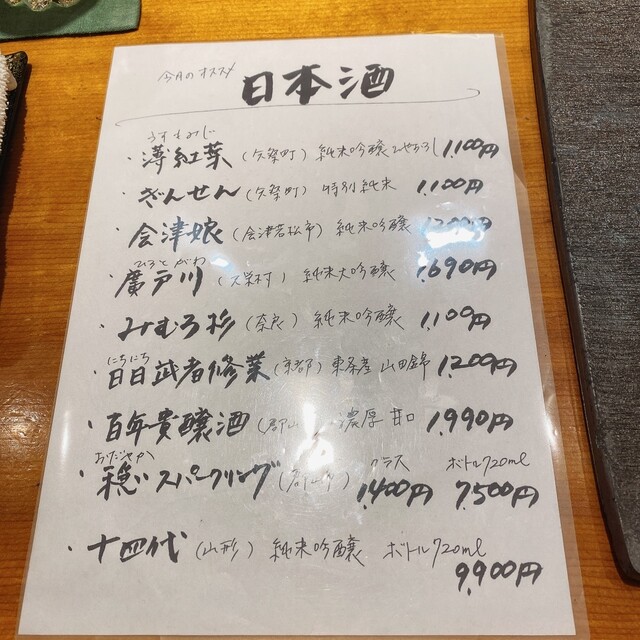 今月のオススメ
日本酒
うすもみじ
・薄紅葉（矢祭町）純米吟醸 ひやおろし 1,100円
・ぎんせん（矢祭町）特別純米 1,100円
・会津娘（会津若松市）純米吟醸
ひろとがわ
・廣戸川（天栄村）純米大吟醸 1,690円
・みむろ杉（奈良）純米吟醸 1,100円
にちにち
・日日武者修業（京都）東条産 山田錦 1,200円
・百年貴醸酒 濃厚 甘口 1,990円
おだやか グラス ボトル720ml
・穏 スパークリング 1,400円 7,500円
・十四代（山形）純米吟醸 ボトル720ml
9,900円